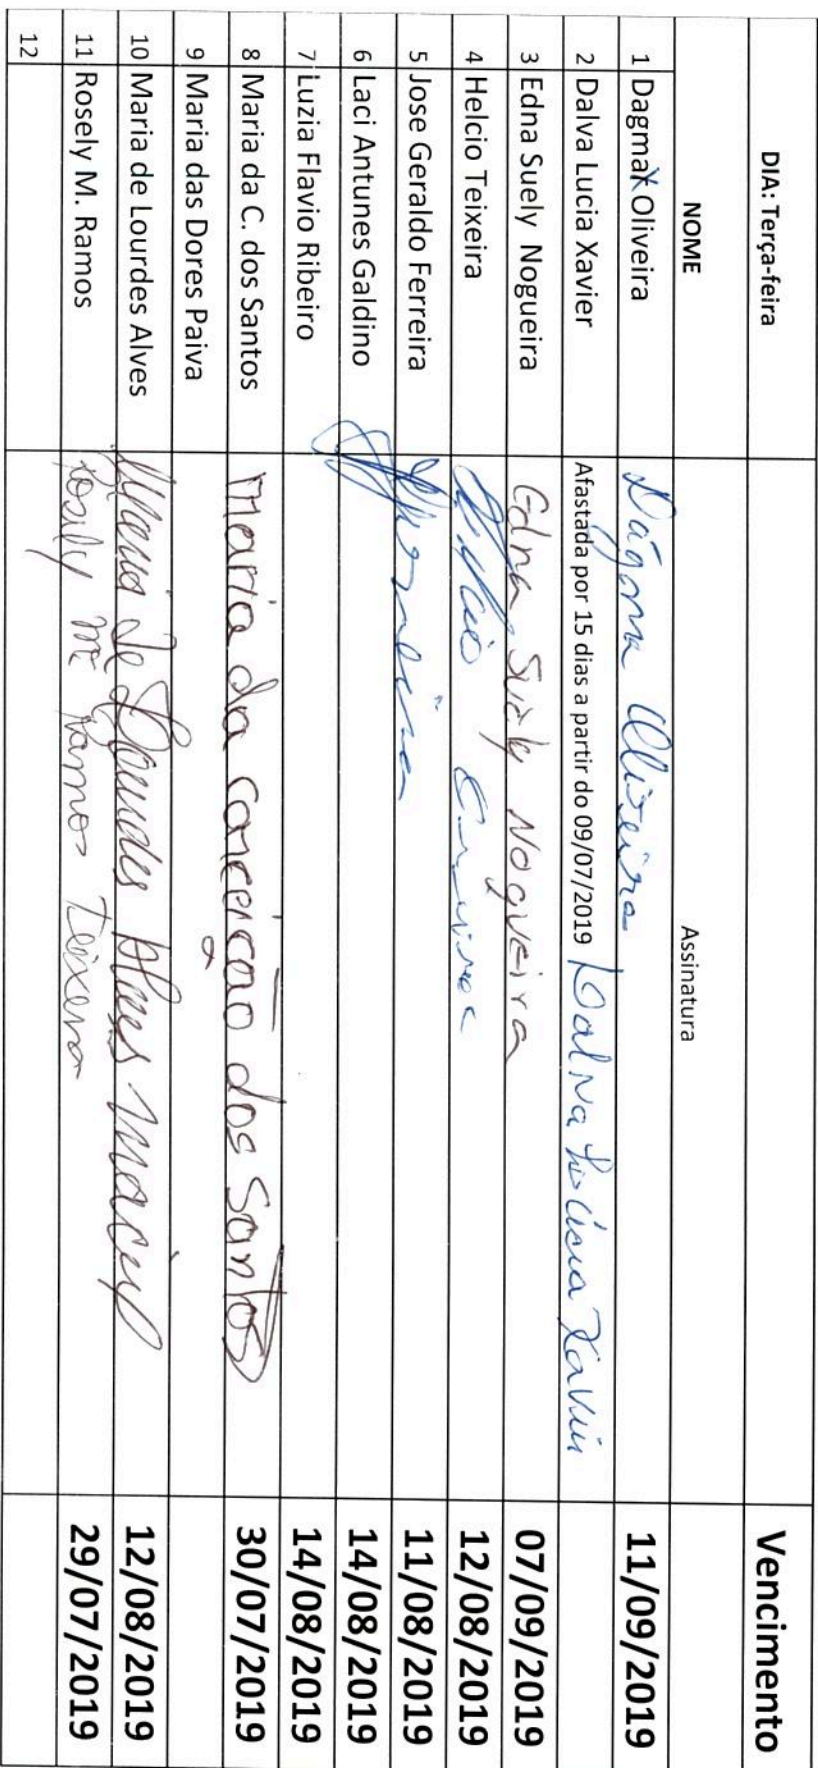 DIA: Terça-feira Vencimento
NOME Assinatura
1 Dagmar Oliveira Dágma Oliveira 11/09/2019
2 Dalva Lucia Xavier Afastada por 15 dias a partir do 09/07/2019 Dalva Lúcia Xavier
3 Edna Suely Nogueira Edna Suely Nogueira 07/09/2019
4 Helcio Teixeira Helcio 12/08/2019
5 Jose Geraldo Ferreira 11/08/2019
6 Laci Antunes Galdino 14/08/2019
7 Luzia Flavio Ribeiro 14/08/2019
8 Maria da C. dos Santos Maria da Conceição dos Santos 30/07/2019
9 Maria das Dores Paiva
10 Maria de Lourdes Alves Maria de Lourdes Alves Maciel 12/08/2019
11 Rosely M. Ramos Rosely Mª Ramos Teixeira 29/07/2019
12